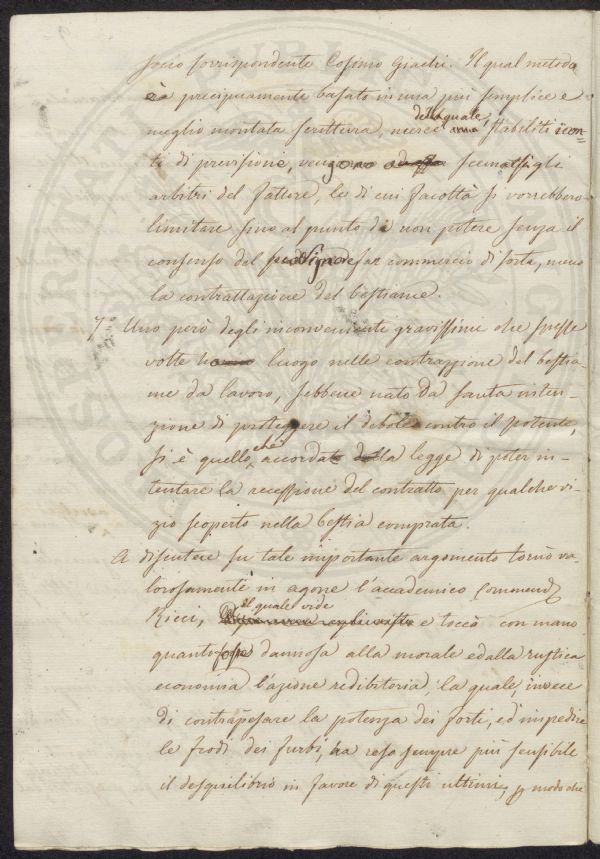 socio corrispondente Cosimo Giachi. Il qual metodo
è precipuamente basato in una più semplice e
meglio montata scrittura, mercé della quale, stabiliti i con-
ti di previsione, vengono scemati gli
arbitri del fattore, le di cui facoltà si vorrebbero
limitare sino al punto di non potere senza il
consenso del Signore far commercio di sorta, meno
la contrattazione del bestiame.
7 Uno però degli inconvenienti gravissimi che spesse
volte luogo nelle contrazzione del bestia-
me da lavoro, sebbene nato da santa inten-
zione di proteggere il debole contro il potente,
si è quello, che accorda la legge di poter in-
tentare la recessione del contratto per qualche vi-
zio scoperto nella bestia comprata.
A discutere su tale importante argomento tornò va-
lorosamente in agone l'accademico Commend
Ricci, il quale vide e toccò con mano
quanto fosse dannosa alla morale ed alla rustica
economia l'azione redibitoria, la quale, invece
di contrapesare la potenza dei forti, ed impedire
le frodi dei furbi, ha reso sempre più sensibile
il desquilibrio in favore di questi ultimi, modo che